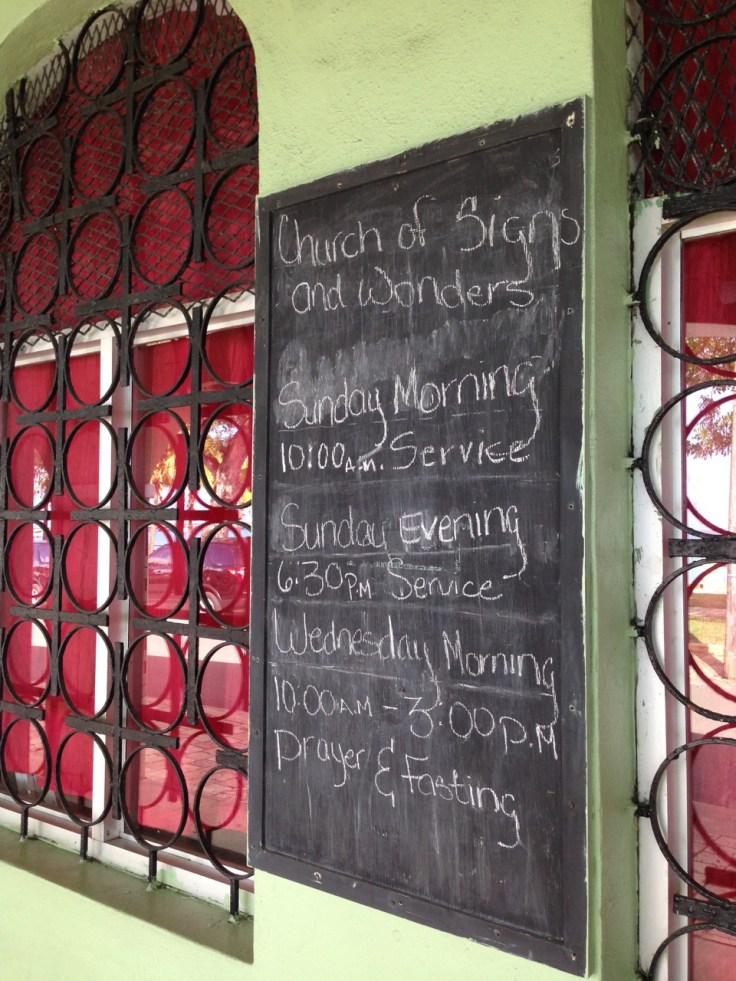 Church of Signs
and Wonders
Sunday Morning
10:00 A.M. Service
Sunday Evening
6:30 P.M Service
Wednesday Morning
10:00 A.M - 3:00 P.M
Prayer & Fasting